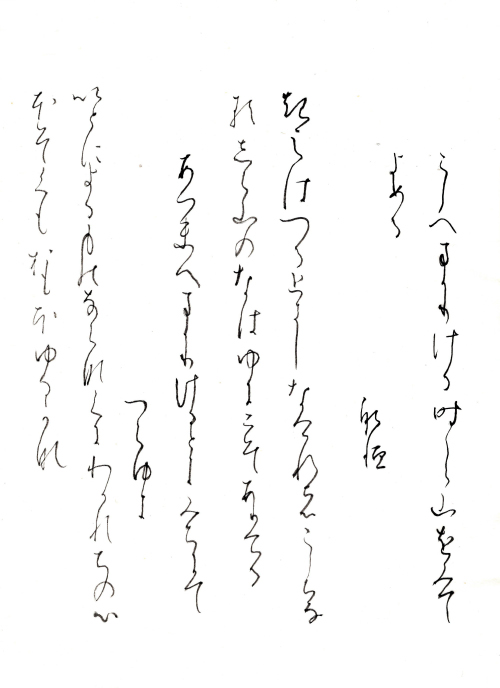 こしへまかりける時しら山をみて
よめる
躬恒
きえはつるときしなけれはこしちな
るしら山のなはゆきにそありける
あつまへまかりけるときみちにて
つらゆき
いとによるものならなくにわかれちの心
ほそくもおもほゆるかな